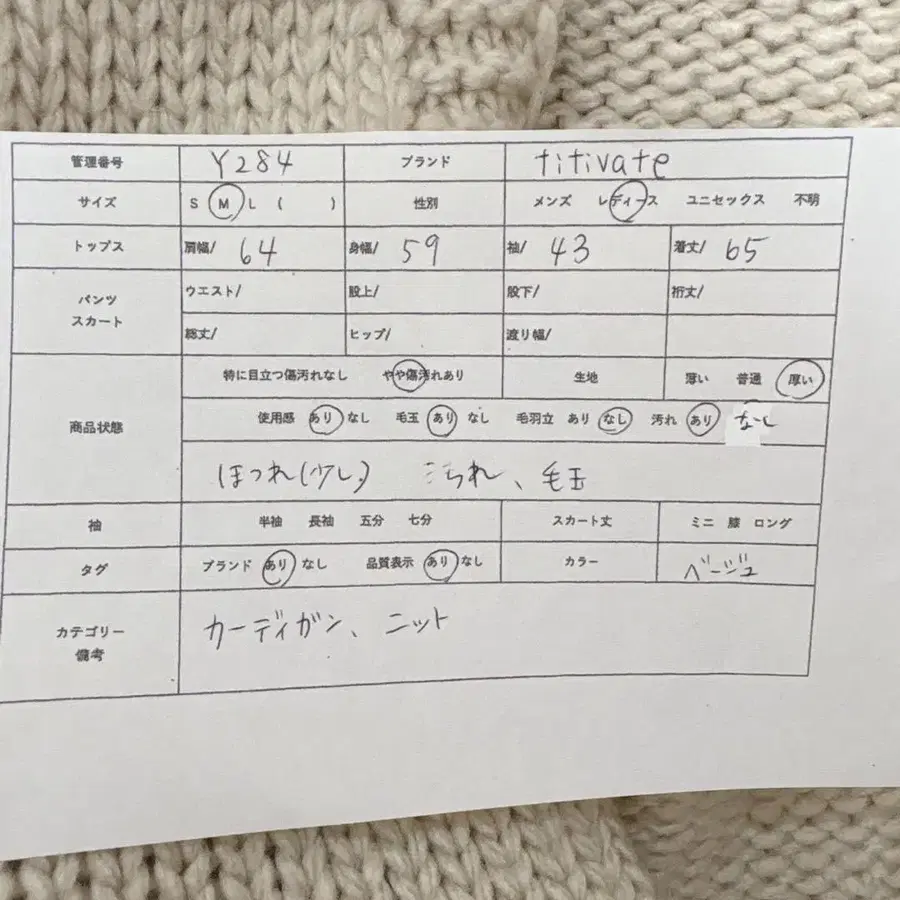 管理番号 Y284 ブランド titivate
サイズ S M L ( ) 性別 メンズ レディース ユニセックス 不明
トップス 肩幅/ 64 身幅/ 59 袖/ 43 着丈/ 65
パンツ スカート ウエスト/ 股上/ 股下/ 裄丈/
総丈/ ヒップ/ 渡り幅/
商品状態 特に目立つ傷汚れなし やや傷汚れあり 生地 薄い 普通 厚い
使用感 あり なし 毛玉 あり なし 毛羽立 あり なし 汚れ あり なし
ほつれ(少し) 汚れ、毛玉
袖 半袖 長袖 五分 七分 スカート丈 ミニ 膝 ロング
タグ ブランド あり なし 品質表示 あり なし カラー ベージュ
カテゴリー 備考 カーディガン、ニット